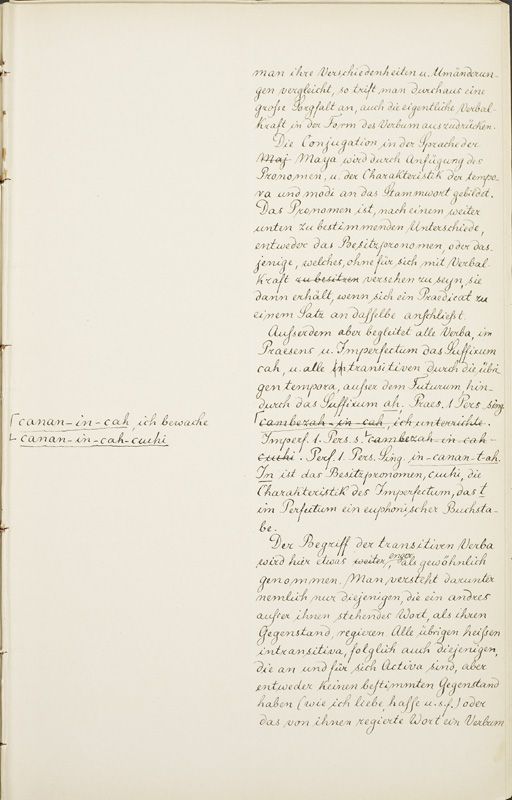 man ihre Verschiedenheiten u. Umänderun-
gen vergleicht, so trift man durchaus eine
große Sorgfalt an, auch die eigentliche Verbal-
kraft in der Form des Verbum auszudrücken.
Die Conjugation in der Sprache der
Maj Maya wird durch Anfügung des
Pronomen, u. der Charakteristik der tempo-
ra und modi an das Stammwort gebildet.
Das Pronomen ist, nach einem weiter
unten zu bestimmenden Unterschiede,
entweder das Besitzpronomen, oder das-
jenige, welches, ohne für sich mit Verbal-
kraft zu besitzen versehen zu seyn, sie
dann erhält, wenn sich ein Praedicat zu
einem Satz an dasselbe anschließt.
Außerdem aber begleitet alle Verba, im
Praesens u. Imperfectum das Suffixum
cah, u. alle transitiven durch die übri-
gen tempora, außer dem Futurum hin-
durch das Suffixum ah. Praes. 1 Pers. sing.
cambezah-in-cah, ich unterrichte.
Imperf. 1. Pers. s. cambezah-in-cah-
cuchi. Perf. 1. Pers. Sing. in-canan-t-ah.
In ist das Besitzpronomen, cuchi, die
Charakteristik des Imperfectum, das t
im Perfectum ein euphonischer Buchsta-
be.
Der Begriff der transitiven Verba
wird hier etwas weiter, enger als gewöhnlich
genommen. Man versteht darunter
nemlich nur diejenigen, die ein andres
außer ihnen stehendes Wort, als ihren
Gegenstand, regieren Alle übrigen heißen
intransitiva, folglich auch diejenigen,
die an und für sich Activa sind, aber
entweder keinen bestimmten Gegenstand
haben (wie ich liebe, hasse u.s.f.) oder
das von ihnen regierte Wort ein Verbum
canan-in-cah, ich bewache
canan-in-cah-cuchi